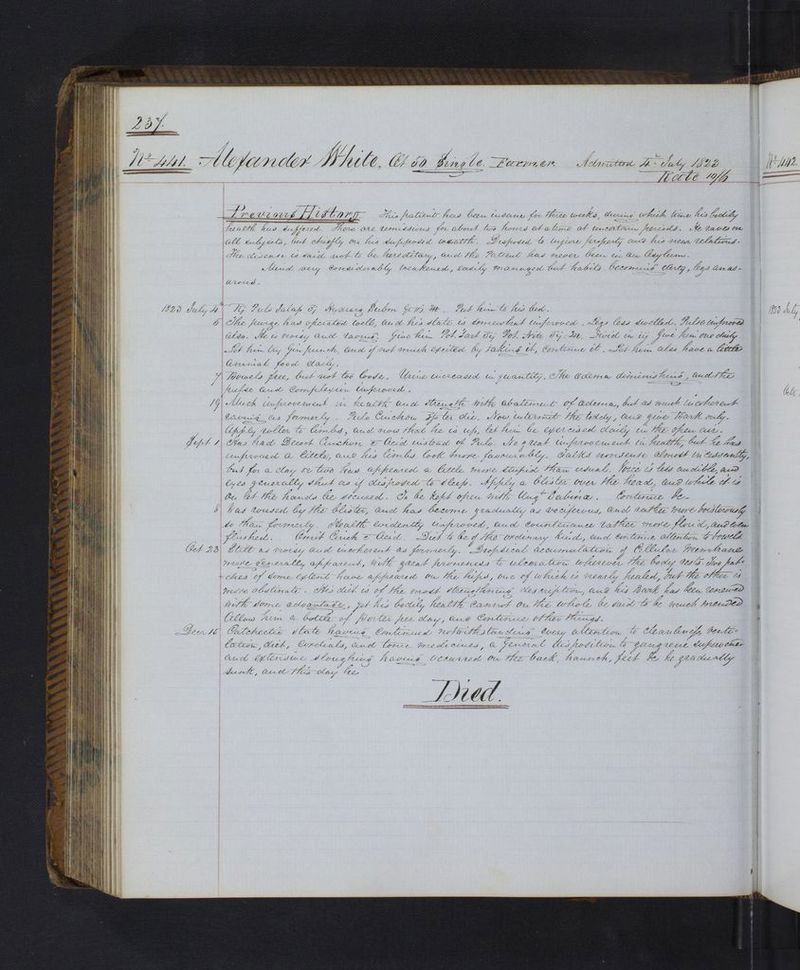 237.
No 441. Alexander White. Æt 50. Single. Farmer. Admitted 4th July 1823
Rate 10/6
Previous History This patient has been insane for three weeks, during which time his bodily
health has suffered. There are remissions for about two hours at a time at uncertain periods. He raves on
all subjects, but chiefly on his supposed wealth. Disposed to injure property and his near relations.
The disease is said not to be hereditary, and the Patient has never been in an Asylum.
Mind very considerably weakened, easily managed but habits becoming dirty, legs anas-
arcous.
1823 July 4th Pulv Jalap Hydrarg Put him to his bed.
6 The purge has operated well, and his state is somewhat improved. Legs less swelled. Pulse improved
also. He is noisy and raving. Give him Pot Tart Pot Nitr Give him one daily
Let him try gin punch, and if not much excited by taking it, continue it. Let him also have a little
animal food daily.
7 Bowels free, but not too loose. Urine increased in quantity. The œdema diminishing, and the
pulse and complexion improved.
19 Much improvement in health and strength with abatement of œdema, but as much incoherent
raving as formerly. Pulv Cinchon ter die. Now intermit the toddy, and give Bark only.
Apply roller to limbs, and now that he is up, let him be exercised daily in the open air.
Sept 1 Has had Decoct Cinchon & Acid instead of Pulv. No great improvement in health, but he has
improved a little, and his limbs look more favourably. Talks nonsense almost incessantly,
but for a day or two has appeared a little more stupid than usual. Voice is less audible, and
eyes generally shut as if disposed to sleep. Apply a blister over the head, and while it is
on let the hands be secured. To be kept open with Ungt Sabinæ. Continue &c
8 Was roused by the blister, and has become gradually as vociferous, and rather more boisterously
so than formerly. Health evidently improved, and countenance rather more florid, and
flushed. Omit Cinch & Acid. Diet to be of the ordinary kind, and continue attention to bowels
Oct 23 Still as noisy and incoherent as formerly. Dropsical accumulation of Cellular Membrane
more generally apparent, with great proneness to ulceration wherever the body rests. Two pat-
ches of some extent have appeared on the hips, one of which is nearly healed, but the other is
more obstinate. His diet is of the most strengthening description, and his Bark has been renewed
with some advantage, yet his bodily health cannot on the whole be said to be much mended
Allow him a bottle of Porter per day, and Continue other things.
Decr 15 Cachectic state having continued notwithstanding every attention to cleanliness venti-
lation, diet, cordials, and tonic medicines, a general disposition to gangrene
and extensive sloughing having occurred on the back, haunch, feet &c he gradually
sunk, and this day he
Died.
No 442.
1823 July